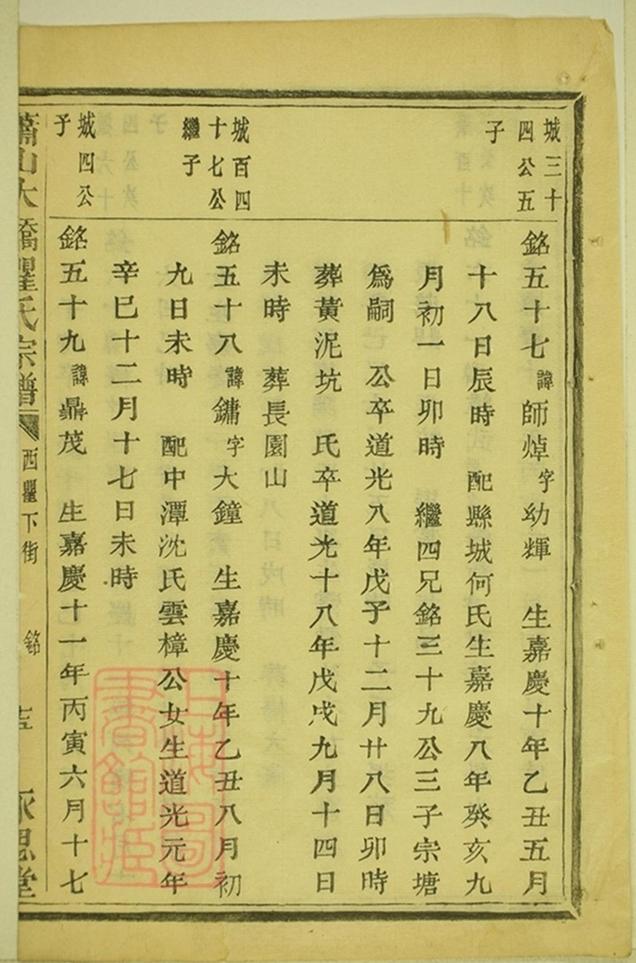 城三十
四公五
子
銘五十七諱師焯字幼輝　生嘉慶十年乙丑五月
十八日辰時　配縣城何氏生嘉慶八年癸亥九
月初一日卯時　繼四兄銘三十九公三子宗塘
爲嗣　公卒道光八年戊子十二月廿八日卯時
葬黃泥坑　氏卒道光十八年戊戌九月十四日
未時　葬長園山
城百四
十七公
繼子
銘五十八諱鏞字大鐘　生嘉慶十年乙丑八月初
九日未時　配中潭沈氏雲樟公女生道光元年
辛巳十二月十七日未時
城四公
子
銘五十九諱鼎茂　生嘉慶十一年丙寅六月十七
蕭山大橋瞿氏宗譜　西瞿下街　銘　永思堂